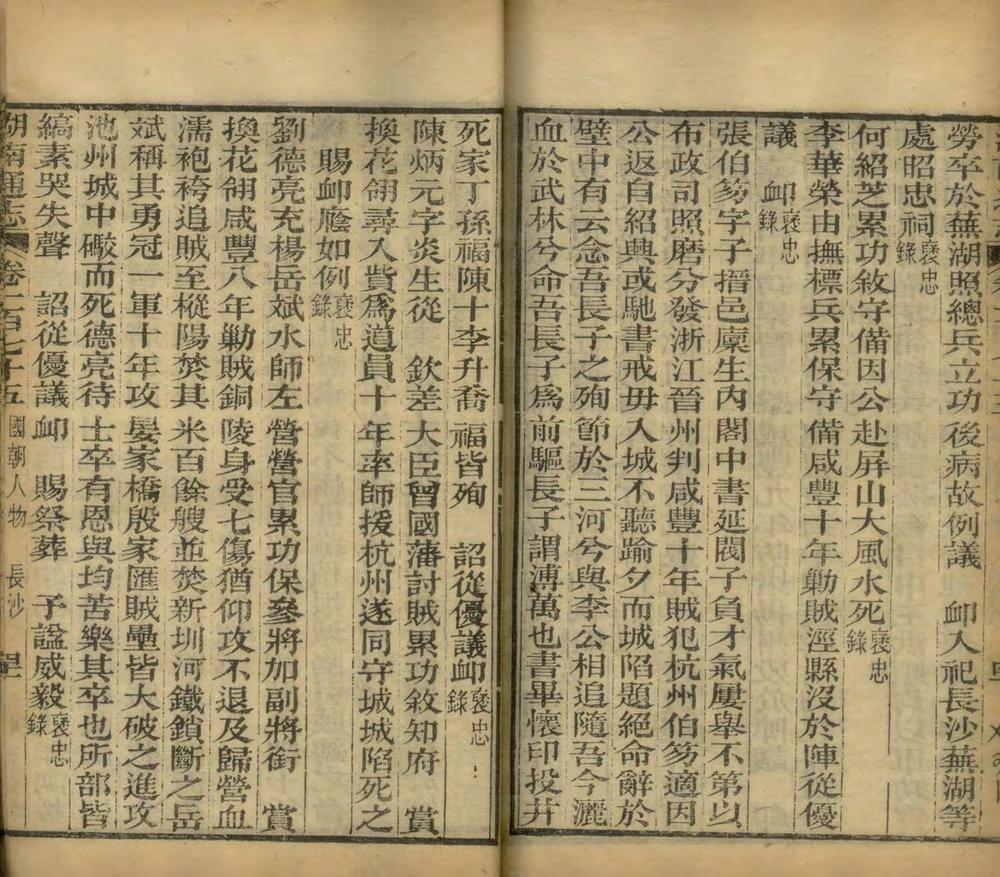 勞卒於蕪湖照總兵立功後病故例議 䘏入祀長沙蕪湖等
處昭忠祠襃忠錄
何紹芝累功敘守備因公赴屏山大風水死襃忠錄
李華榮由撫標兵累保守備咸豐十年勦賊涇縣沒於陣從優
議 䘏襃忠錄
張伯芴字子搢邑廩生內閣中書延閥子負才氣屢舉不第以
布政司照磨分發浙江晉州判咸豐十年賊犯杭州伯芴適因
公返自紹興或馳書戒毋入城不聽踰夕而城陷題絕命辭於
壁中有云念吾長子之殉節於三河兮與李公相追隨吾今灑
血於武林兮命吾長子為前驅長子謂溥萬也書畢懷印投井
死家丁孫福陳十李升喬福皆殉 詔從優議䘏襃忠錄
陳炳元字炎生從 欽差大臣曾國藩討賊累功敘知府 賞
換花翎尋入貲爲道員十年率師援杭州遂同守城城陷死之
賜䘏廕如例襃忠錄
劉德亮充楊岳斌水師左營營官累功保參將加副將銜 賞
換花翎咸豐八年勦賊銅陵身受七傷猶仰攻不退及歸營血
濡袍袴追賊至樅陽焚其米百餘艘並焚新圳河鐵鎖斷之岳
斌稱其勇冠一軍十年攻晏家橋殷家匯賊壘皆大破之進攻
池州城中礮而死德亮待士卒有恩與均苦樂其卒也所部皆
縞素哭失聲 詔從優議䘏 賜祭葬 予諡威毅襃忠錄
湖南通志 卷一百七十五 國朝人物 長沙